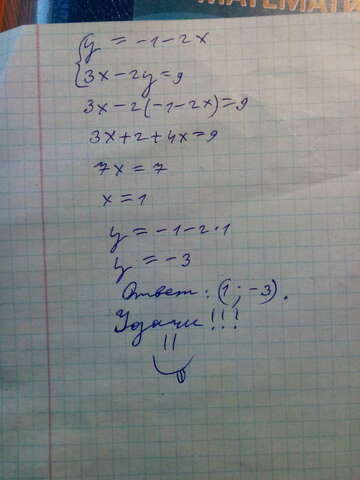 МАТЕМАТИ
{y = -1-2x
3x-2y=9
3x-2(-1-2x)=9
3x+2+4x=9
7x=7
x=1
y=-1-2·1
y=-3
Ответ: (1;-3).
Удачи!!!